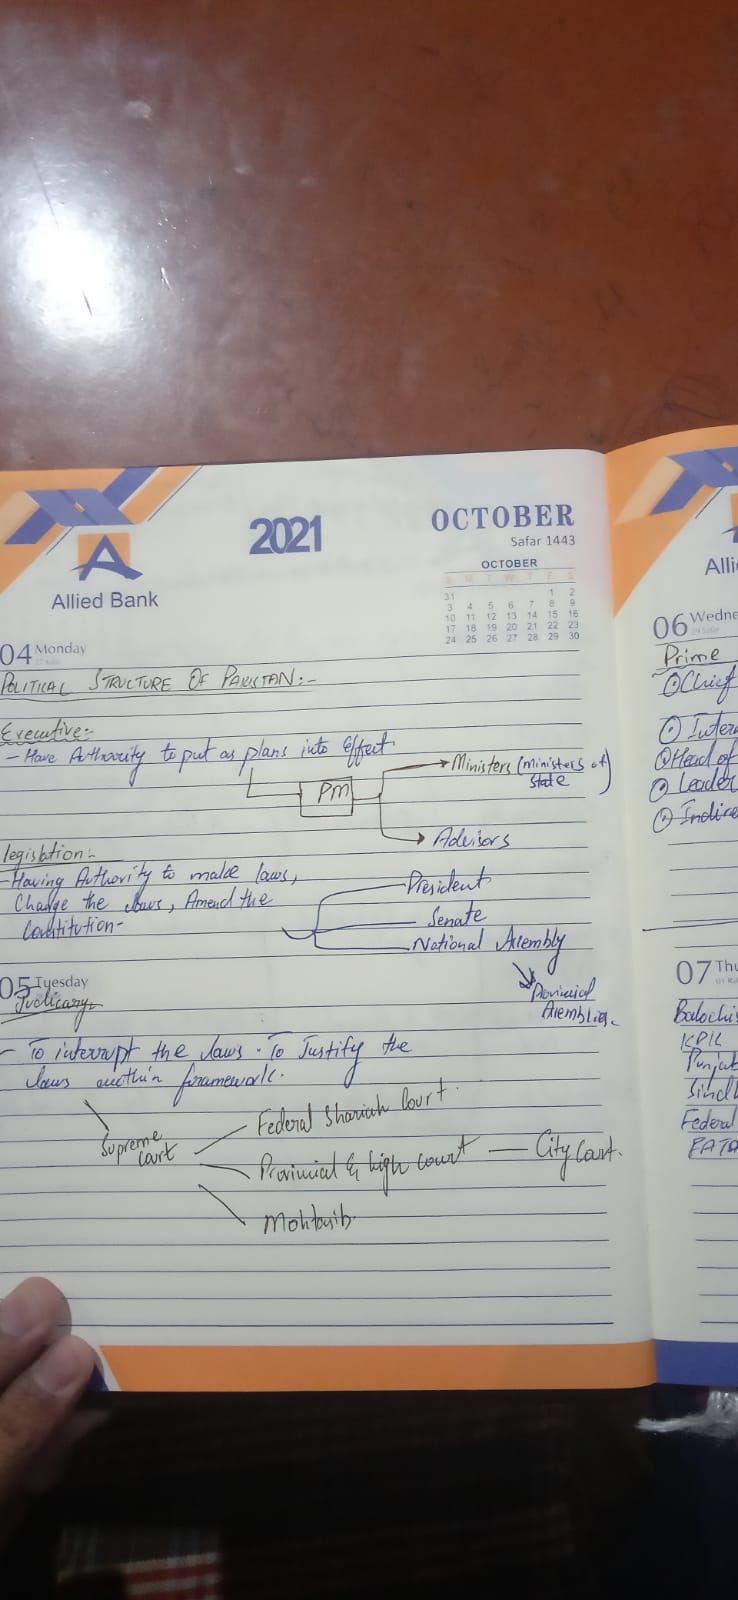 2021
OCTOBER
Safar 1443
OCTOBER
S M T W T F S
31 1 2
3 4 5 6 7 8 9
10 11 12 13 14 15 16
17 18 19 20 21 22 23
24 25 26 27 28 29 30
Allied Bank
04 Monday
POLITICAL STRUCTURE OF PAKISTAN:-
Executive:-
- Have Authority to put as plans into Effect.
PM
Ministers (Ministers of
State)
Advisors
legislation:-
- Having Authority to make laws,
Change the laws, Amend the
Constitution-
President
Senate
National Assembly
Provincial
05 Tuesday
Judicary
- To interrupt the laws. To Justify the
laws framework.
Supreme
Court
Federal Shariah Court.
Provincial & high court — City Court.
Mohtasib.
Alli
06 Wedne
Prime
Chief
Inter
Head of
Leader
Indire
07 Thu
Balochis
KPK
Punjab
Sindh
Federal
FATA